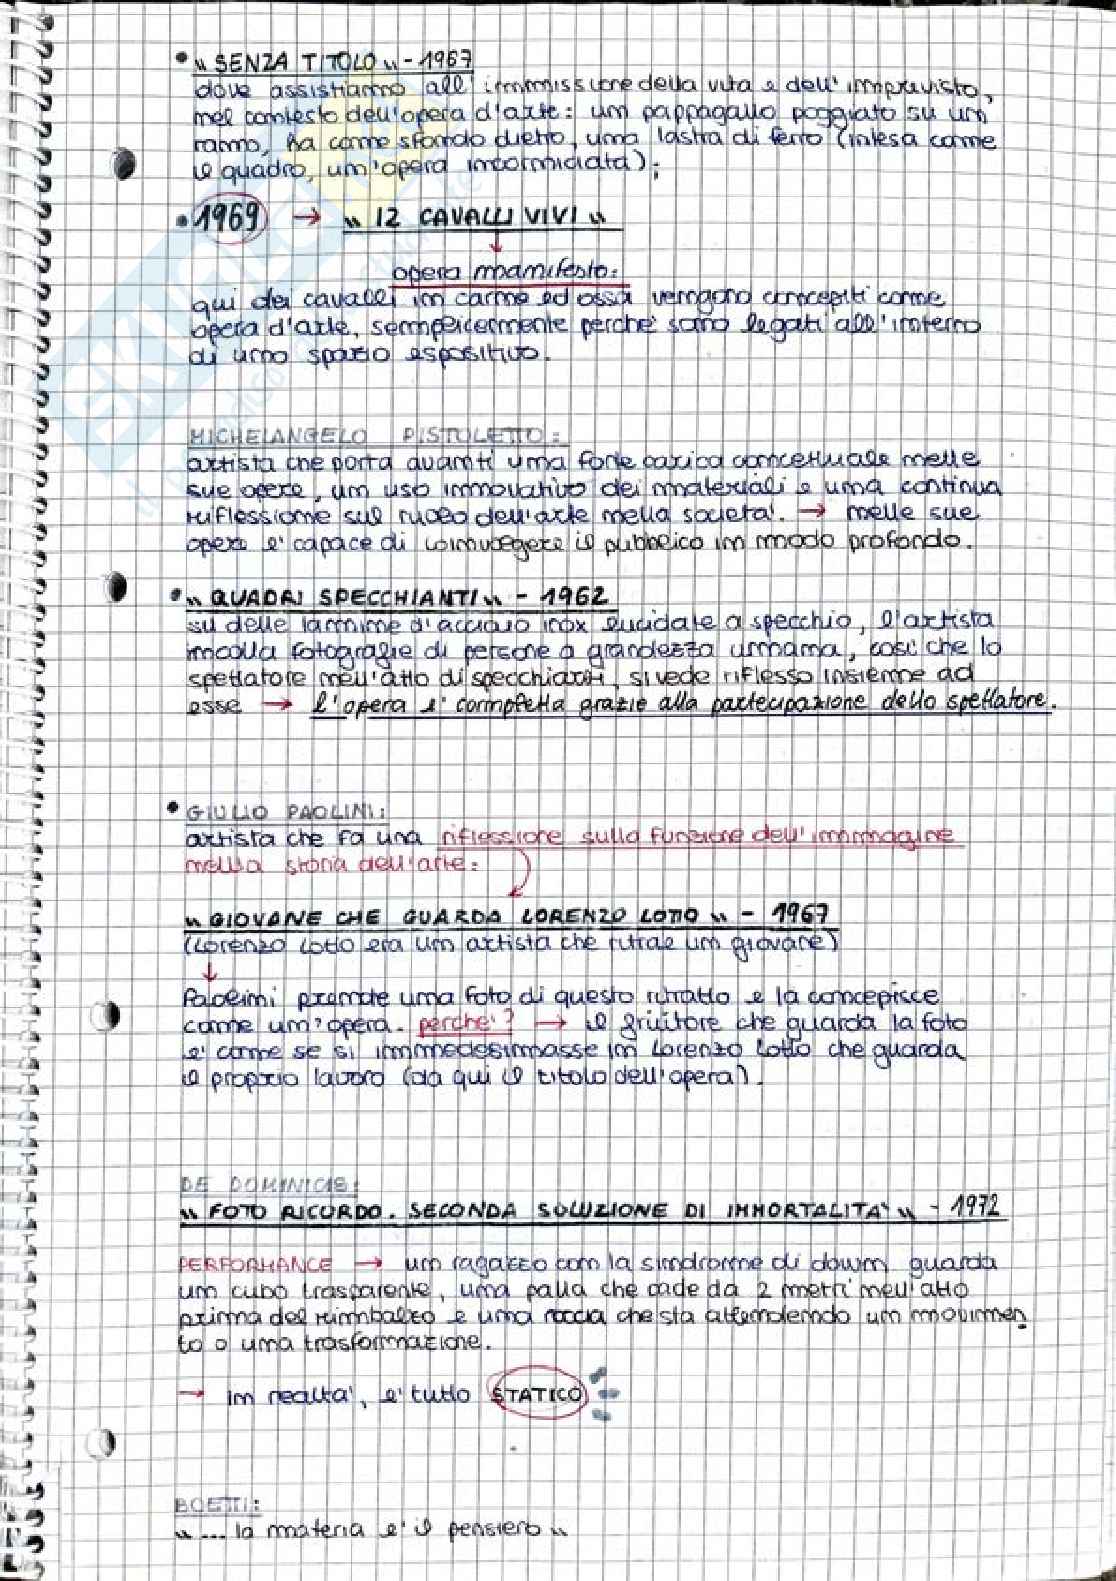 • " SENZA TITOLO " - 1967
dove assistiamo all'immissione della vita e dell'imprevisto,
nel contesto dell'opera d'arte: un pappagallo poggiato su un
ramo, ha come sfondo dietro, una lastra di ferro (intesa come
il quadro, un'opera incorniciata);
• 1969 → " 12 CAVALLI VIVI "
↓
opera manifesto:
qui dei cavalli in carne ed ossa vengono concepiti come
opera d'arte, semplicemente perché sono legati all'interno
di uno spazio espositivo.
MICHELANGELO PISTOLETTO:
artista che porta avanti una forte carica concettuale nelle
sue opere, un uso innovativo dei materiali e una continua
riflessione sul ruolo dell'arte nella società. → nelle sue
opere e' capace di coinvolgere il pubblico in modo profondo.
• " QUADRI SPECCHIANTI " - 1962
su delle lamine d'acciaio inox lucidate a specchio, l'artista
incolla fotografie di persone a grandezza umana, cosi' che lo
spettatore nell'atto di specchiarsi, si vede riflesso insieme ad
esse → l'opera e' completa grazie alla partecipazione dello spettatore.
• GIULIO PAOLINI:
artista che fa una riflessione sulla funzione dell'immagine
nella storia dell'arte:
" GIOVANE CHE GUARDA LORENZO LOTTO " - 1967
(Lorenzo Lotto era un artista che ritrae un giovane)
↓
Paolini prende una foto di questo ritratto e la concepisce
come un'opera. perche'? → il fruitore che guarda la foto
e' come se si immedesimasse in Lorenzo Lotto che guarda
il proprio lavoro (da qui il titolo dell'opera).
DE DOMINICIS:
" FOTO RICORDO. SECONDA SOLUZIONE DI IMMORTALITA' " - 1972
PERFORMANCE → un ragazzo con la sindrome di down, guarda
un cubo trasparente, una palla che cade da 2 metri nell'atto
prima del rimbalzo e una roccia che sta attendendo un movimen
to o una trasformazione.
→ in realta', e' tutto STATICO
BOETTI:
" ... la materia e' il pensiero "